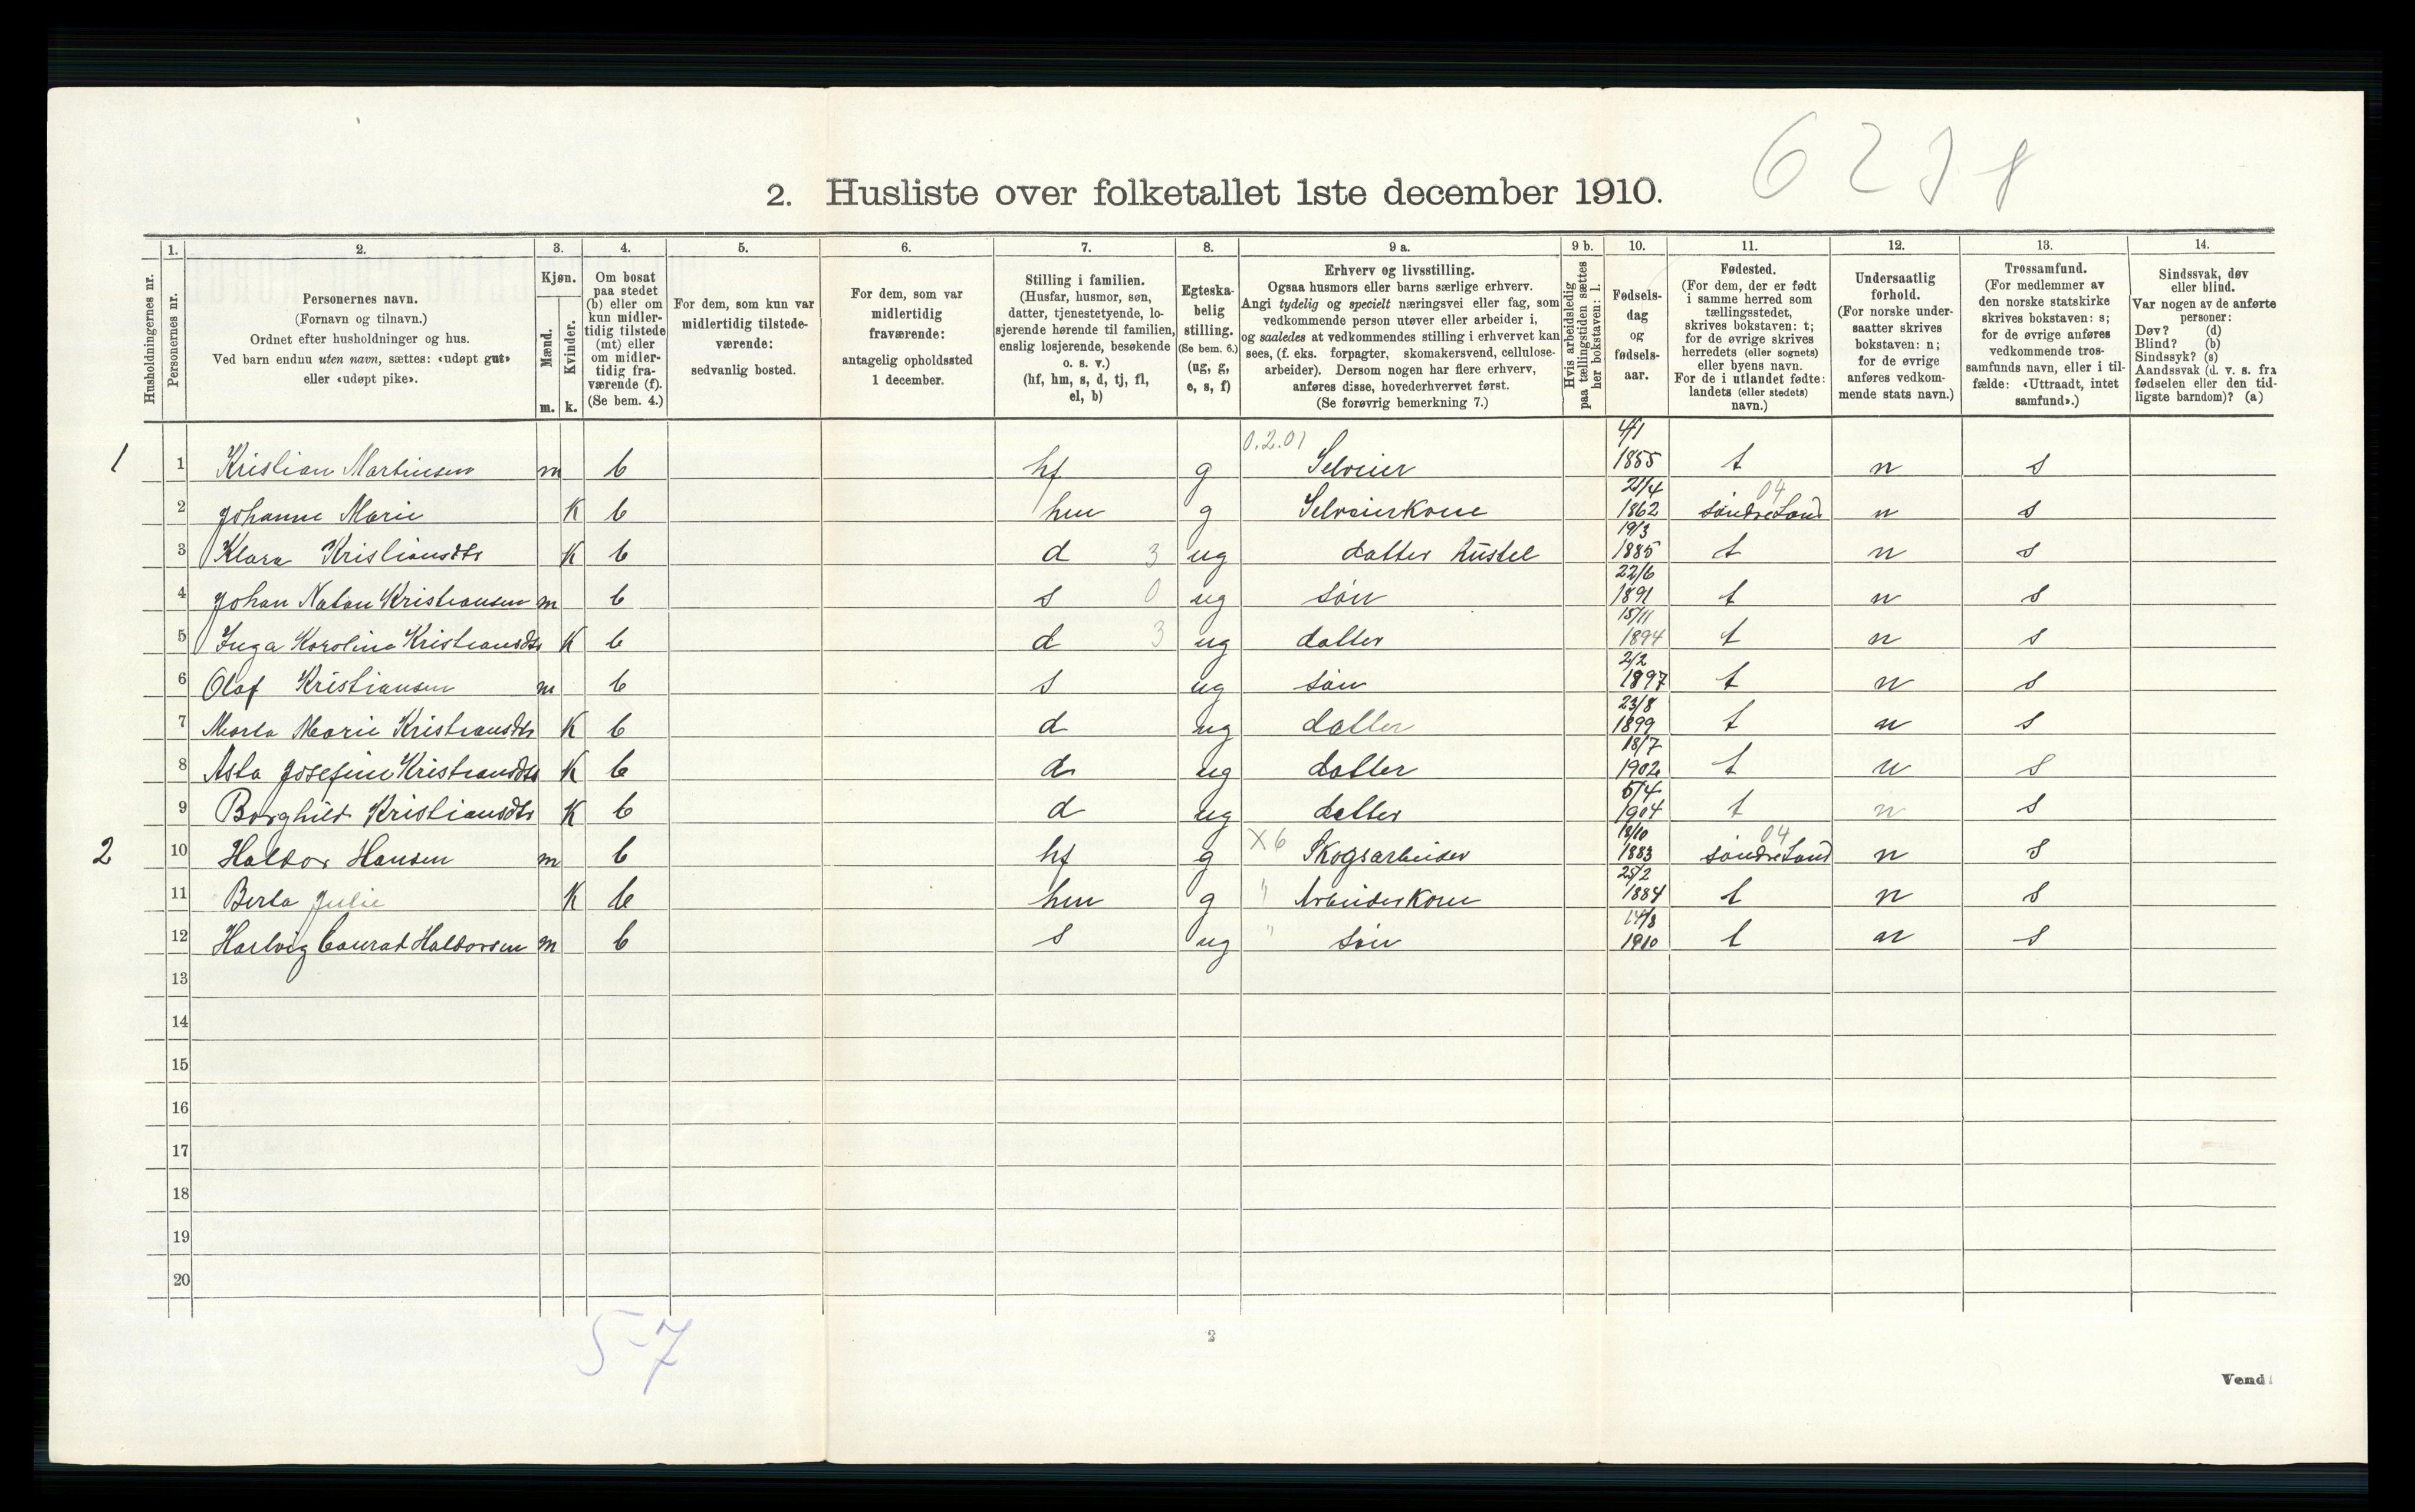 6278
2. Husliste over folketallet 1ste december 1910.
Husholdningernes nr.
1.
Personernes nr.
2.
Personernes navn.
(Fornavn og tilnavn.)
Ordnet efter husholdninger og hus.
Ved barn endnu uten navn, sættes: «udøpt gut»
eller «udøpt pike».
3.
Kjøn.
Mænd.
Kvinder.
m. k.
4.
Om bosat
paa stedet
(b) eller om
kun midler-
tidig tilstede
(mt) eller
om midler-
tidig fra-
værende (f).
(Se bem. 4.)
5.
For dem, som kun var
midlertidig tilstede-
værende:
sedvanlig bosted.
6.
For dem, som var
midlertidig
fraværende:
antagelig opholdssted
1 december.
7.
Stilling i familien.
(Husfar, husmor, søn,
datter, tjenestetyende, lo-
sjerende hørende til familien,
enslig losjerende, besøkende
o. s. v.)
(hf, hm, s, d, tj, fl,
el, b)
8.
Egteska-
belig
stilling.
(Se bem. 6.)
(ug, g,
e, s, f)
9 a.
Erhverv og livsstilling.
Ogsaa husmors eller barns særlige erhverv.
Angi tydelig og specielt næringsvei eller fag, som
vedkommende person utøver eller arbeider i,
og saaledes at vedkommendes stilling i erhvervet kan
sees, (f. eks. forpagter, skomakersvend, cellulose-
arbeider). Dersom nogen har flere erhverv,
anføres disse, hovederhvervet først.
(Se forøvrig bemerkning 7.)
9 b.
Hvis arbeidsledig
paa tællingstiden sættes
her bokstaven: l.
10.
Fødsels-
dag
og
fødsels-
aar.
11.
Fødested.
(For dem, der er født
i samme herred som
tællingsstedet,
skrives bokstaven: t;
for de øvrige skrives
herredets (eller sognets)
eller byens navn.
For de i utlandet fødte:
landets (eller stedets)
navn.)
12.
Undersaatlig
forhold.
(For norske under-
saatter skrives
bokstaven: n;
for de øvrige
anføres vedkom-
mende stats navn.)
13.
Trossamfund.
(For medlemmer av
den norske statskirke
skrives bokstaven: s;
for de øvrige anføres
vedkommende tros-
samfunds navn, eller i til-
fælde: «Uttraadt, intet
samfund».)
14.
Sindssvak, døv
eller blind.
Var nogen av de anførte
personer:
Døv? (d)
Blind? (b)
Sindssyk? (s)
Aandssvak (d. v. s. fra
fødselen eller den tid-
ligste barndom)? (a)
1 1 Kristian Martinsen m b hf g 0.2.01 Selveier 4/1 1855 t n s
2 Johanne Marie K b hm g Selveierkone 21/4 1862 søndre Land 04 n s
3 Klara Kristiansdtr K b d 3 ug datter hustel 19/3 1885 t n s
4 Johan Natan Kristiansen m b s 0 ug søn 22/6 1891 t n s
5 Inga Karoline Kristiansdtr K b d 3 ug datter 15/11 1894 t n s
6 Olaf Kristiansen m b s ug søn 2/2 1897 t n s
7 Marta Marie Kristiansdtr K b d ug datter 23/8 1899 t n s
8 Asta Josefine Kristiansdtr K b d ug datter 18/7 1902 t n s
9 Borghild Kristiansdtr K b d ug datter 5/4 1904 t n s
2 10 Haldor Hansen m b hf g X6 Skogsarbeider 12/10 1883 søndre Land 04 n s
11 Berta Julie K b hm g " Arbeiderkone 25/2 1884 t n s
12 Hartvig Conrad Haldorsen m b s ug " søn 14/3 1910 t n s
13
14
15
16
17
18
19
20
5-7
2
Vend!